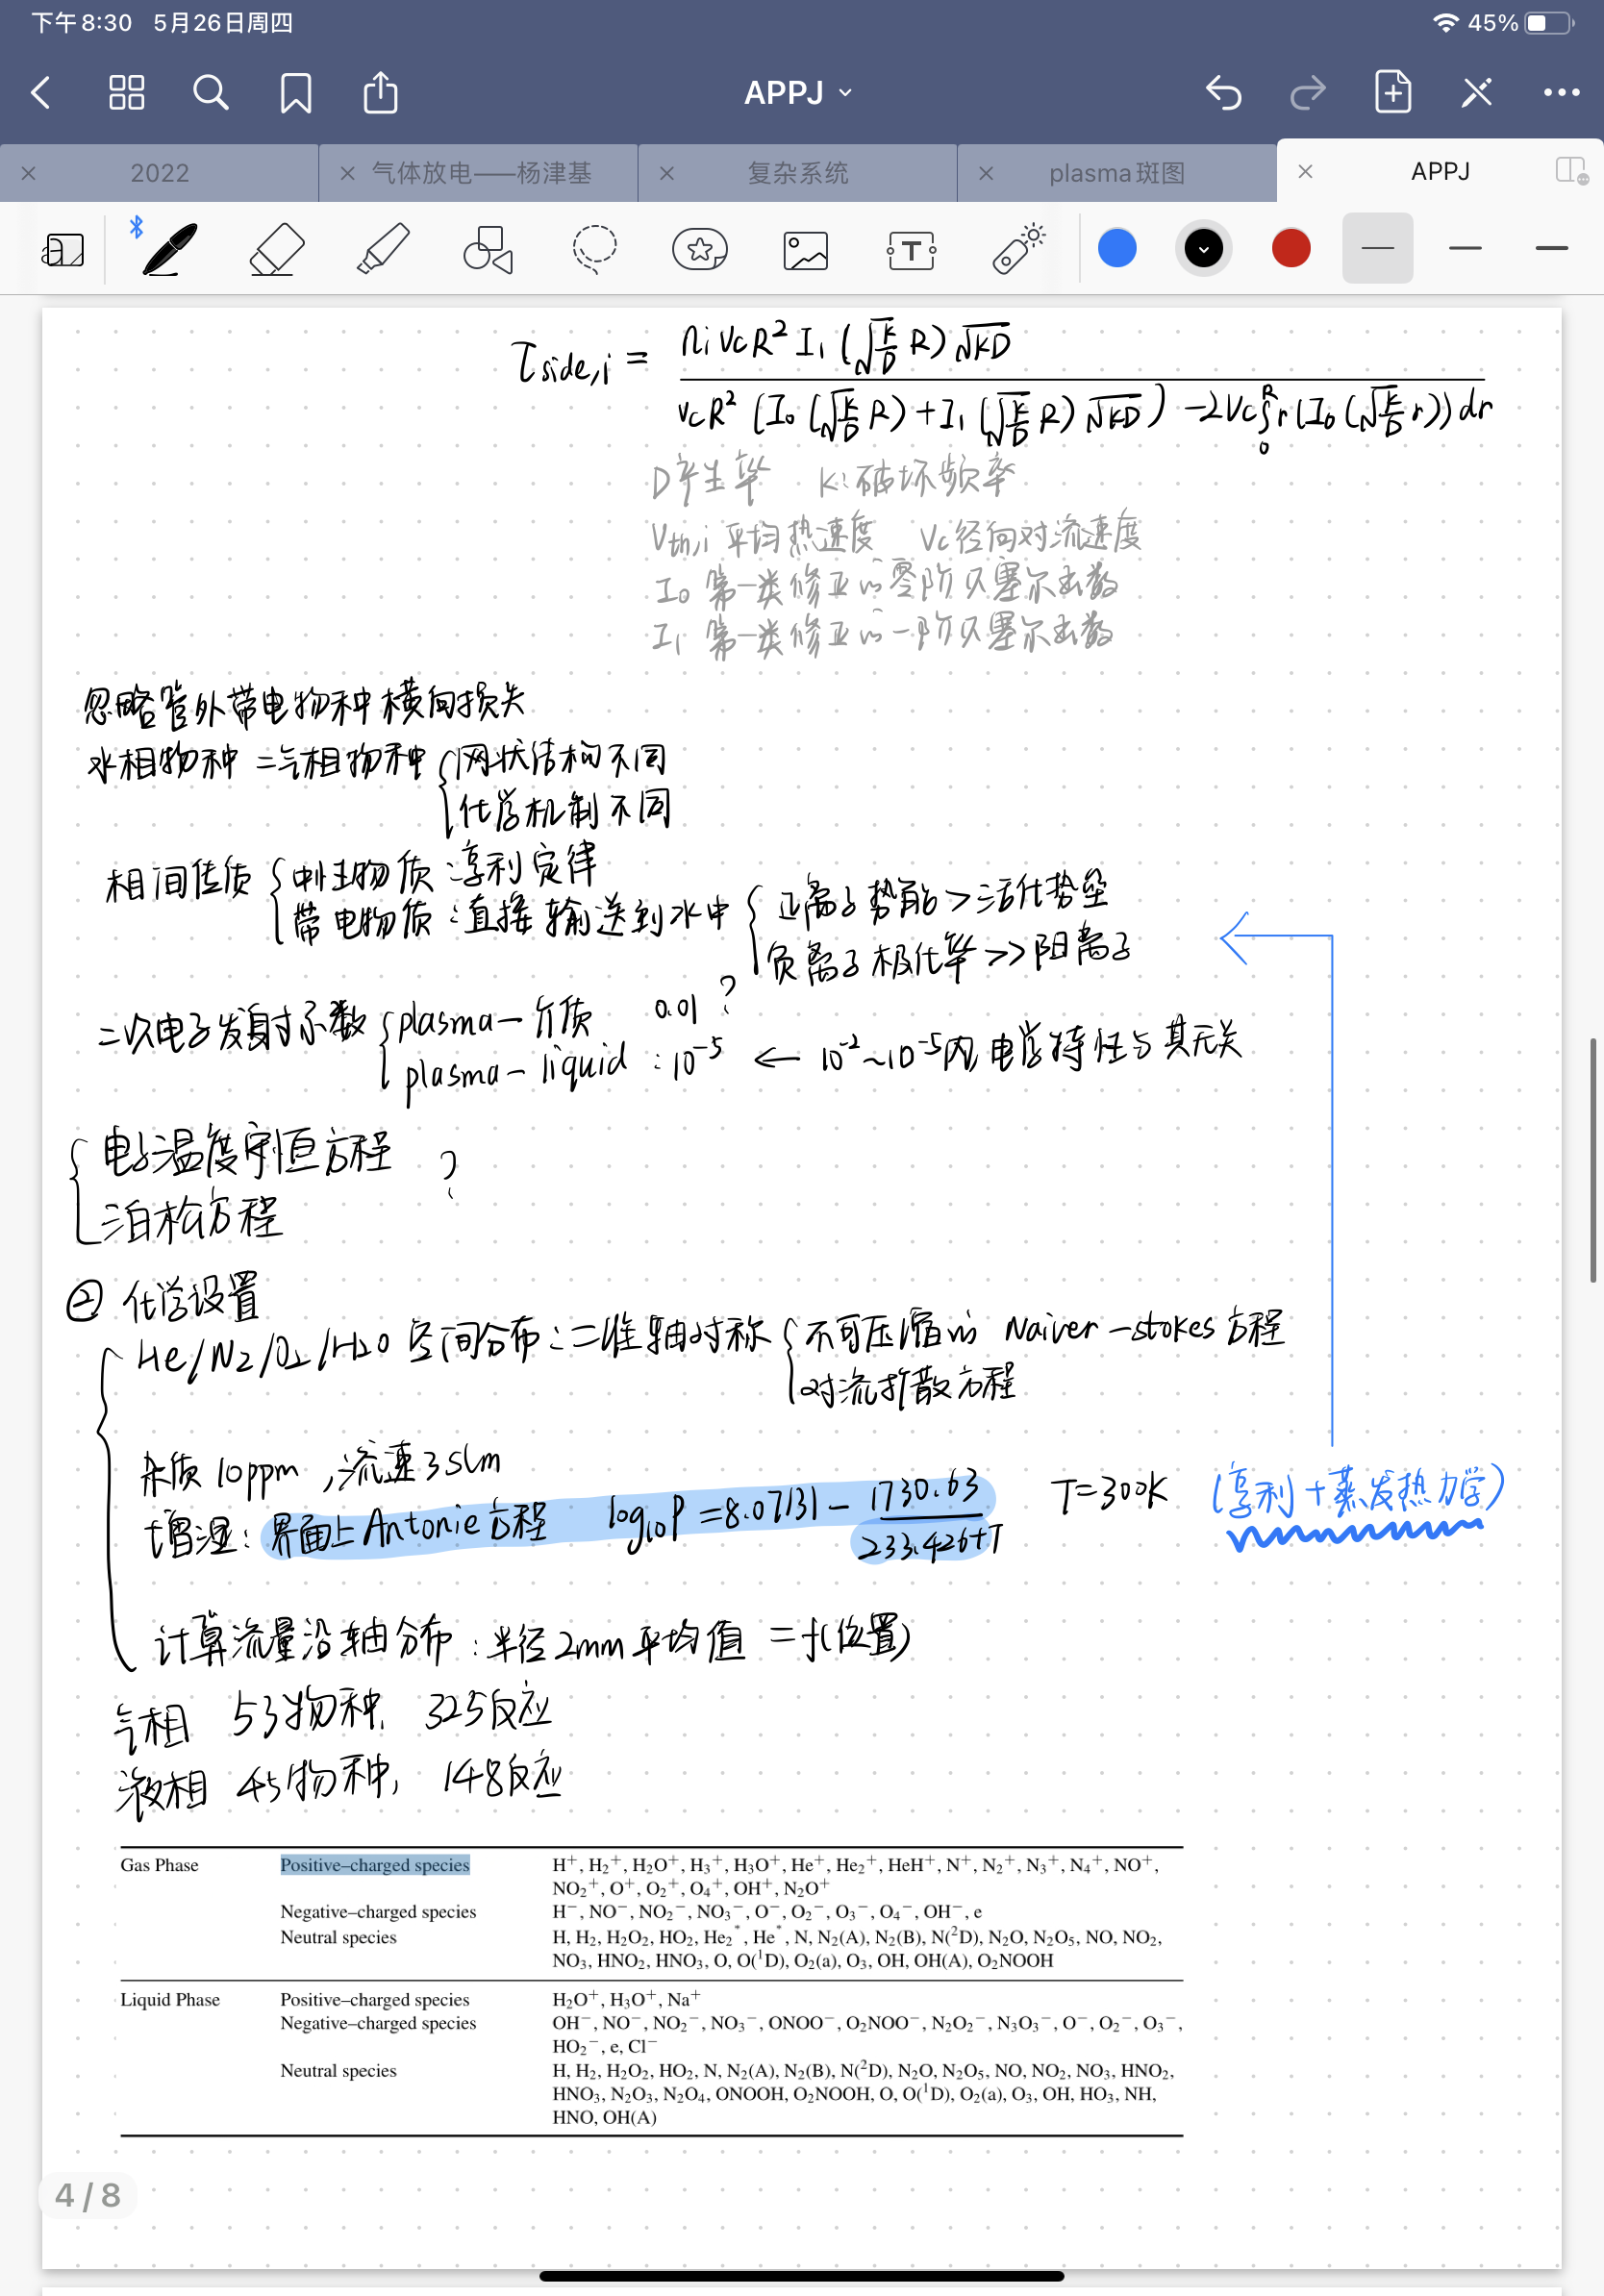 下午8:30 5月26日周四 45%
APPJ
2022 气体放电——杨津基 复杂系统 plasma斑图 APPJ
τside,i = niVcR² I₁(√(k/D) R)√(kD) / VcR² (I₀(√(k/D) R) + I₁(√(k/D) R)√(kD)) − 2Vc∫₀ᴿ r(I₀(√(k/D) r)) dr
D产生率 k:破坏频率
Vth,i 平均热速度 Vc径向对流速度
I₀ 第一类修正的零阶贝塞尔函数
I₁ 第一类修正的一阶贝塞尔函数
忽略管外带电物种横向损失
水相物种=气相物种 { 网状结构不同
化学机制不同
相间传质 { 中性物质:亨利定律
带电物质:直接输送到水中 { 正离子势能>活化势垒
负离子极化率>>阳离子
二次电子发射系数 { plasma-介质 0.01 ?
plasma-liquid : 10⁻⁵ ← 10⁻²~10⁻⁵内电学特性与其无关
{ 电子温度守恒方程 ?
泊松方程
② 化学设置
He/N₂/O₂/H₂O 空间分布:二维轴对称 { 不可压缩的 Naiver-stokes方程
对流扩散方程
杂质10ppm,流速3slm
增湿:界面上Antonie方程 log₁₀P=8.07131−1730.63/(233.426+T) T=300K (亨利+蒸发热力学)
计算流量沿轴分布:半径2mm平均值=f(位置)
气相 53物种, 325反应
液相 45物种, 148反应
Gas Phase Positive–charged species H⁺, H₂⁺, H₂O⁺, H₃⁺, H₃O⁺, He⁺, He₂⁺, HeH⁺, N⁺, N₂⁺, N₃⁺, N₄⁺, NO⁺,
NO₂⁺, O⁺, O₂⁺, O₄⁺, OH⁺, N₂O⁺
Negative–charged species H⁻, NO⁻, NO₂⁻, NO₃⁻, O⁻, O₂⁻, O₃⁻, O₄⁻, OH⁻, e
Neutral species H, H₂, H₂O₂, HO₂, He₂*, He*, N, N₂(A), N₂(B), N(²D), N₂O, N₂O₅, NO, NO₂,
NO₃, HNO₂, HNO₃, O, O(¹D), O₂(a), O₃, OH, OH(A), O₂NOOH
Liquid Phase Positive–charged species H₂O⁺, H₃O⁺, Na⁺
Negative–charged species OH⁻, NO⁻, NO₂⁻, NO₃⁻, ONOO⁻, O₂NOO⁻, N₂O₂⁻, N₃O₃⁻, O⁻, O₂⁻, O₃⁻,
HO₂⁻, e, Cl⁻
Neutral species H, H₂, H₂O₂, HO₂, N, N₂(A), N₂(B), N(²D), N₂O, N₂O₅, NO, NO₂, NO₃, HNO₂,
HNO₃, N₂O₃, N₂O₄, ONOOH, O₂NOOH, O, O(¹D), O₂(a), O₃, OH, HO₃, NH,
HNO, OH(A)
4 / 8